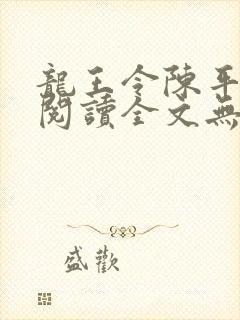 龍王令陳平
閱讀全文無
盛歡